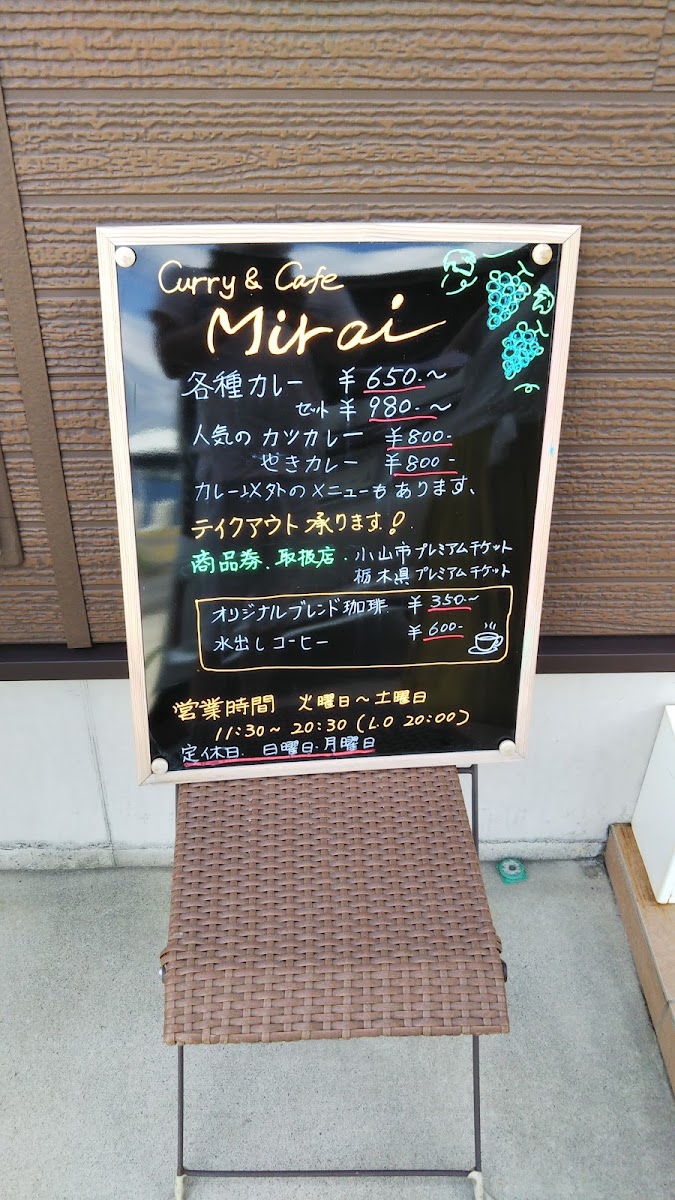 Curry & Cafe
Mirai
各種カレー ¥650.～
セット ¥980.～
人気の カツカレー ¥800-
やきカレー ¥800-
カレー以外のメニューもあります、
テイクアウト承ります!
商品券、取扱店・小山市プレミアムチケット
栃木県プレミアムチケット
オリジナルブレンド珈琲 ¥350～
水出しコーヒー ¥600-
営業時間 火曜日～土曜日
11:30～20:30(L.O 20:00)
定休日 日曜日・月曜日